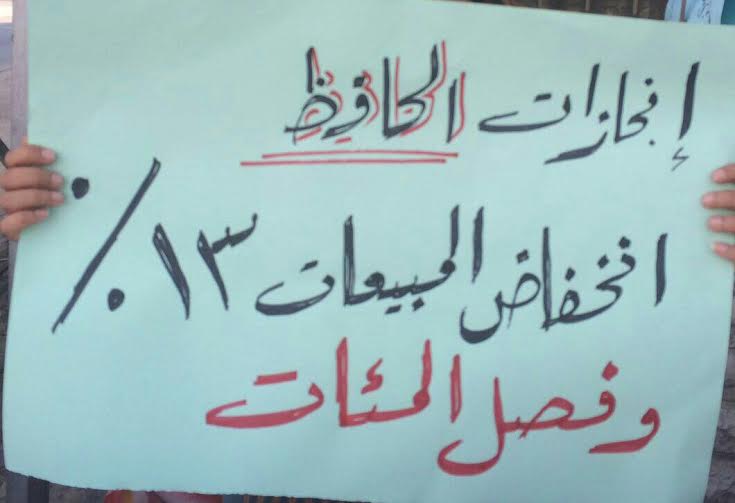 إنجازات الحافظ
انخفاض المبيعات ١٣٪
وفصل المئات